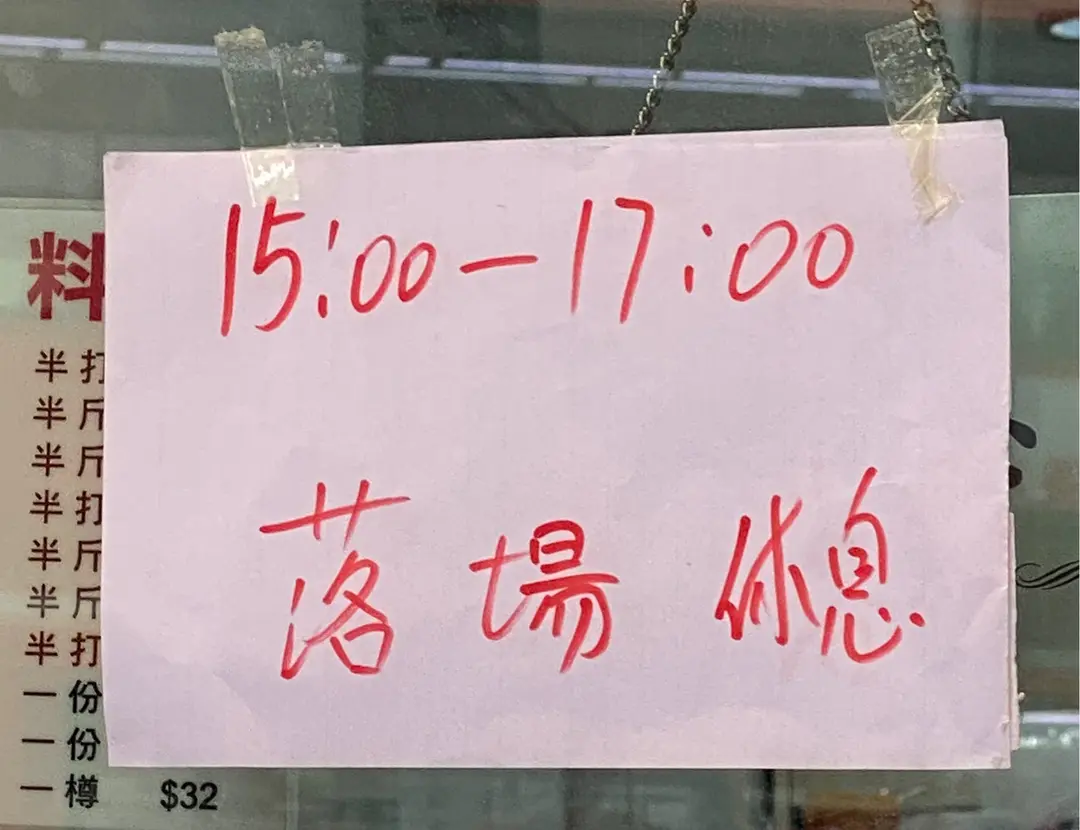 15:00-17:00
落場 休息
料
半打
半斤
半斤
半打
半斤
半斤
半打
一份
一份
一樽 $32